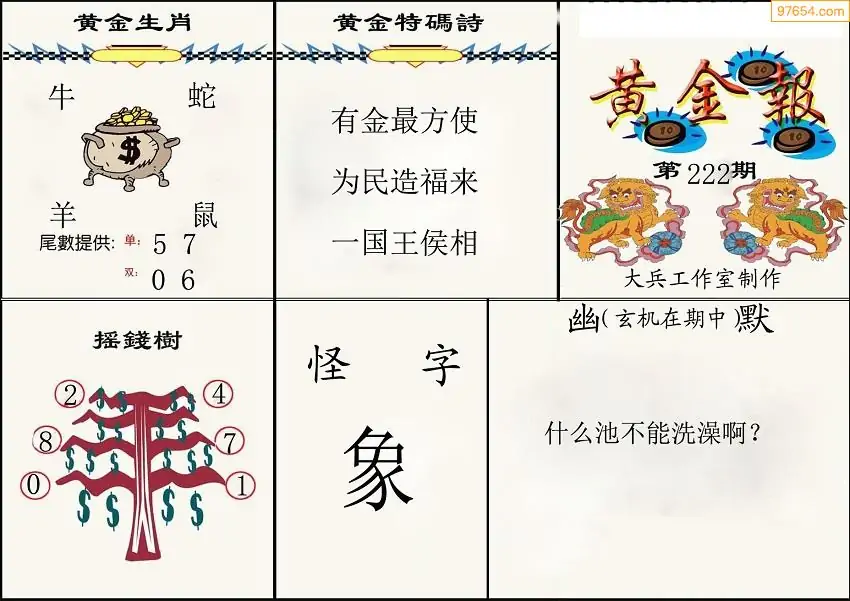 97654.com
黄金生肖
牛 蛇
$
羊 鼠
尾數提供: 单: 5 7
双: 0 6
黄金特碼詩
有金最方使
为民造福来
一国王侯相
黄金報
10
10
10
第222期
大兵工作室制作
摇錢樹
2 4
8 7
0 1
怪 字
象
幽(玄机在期中)默
什么池不能洗澡啊?